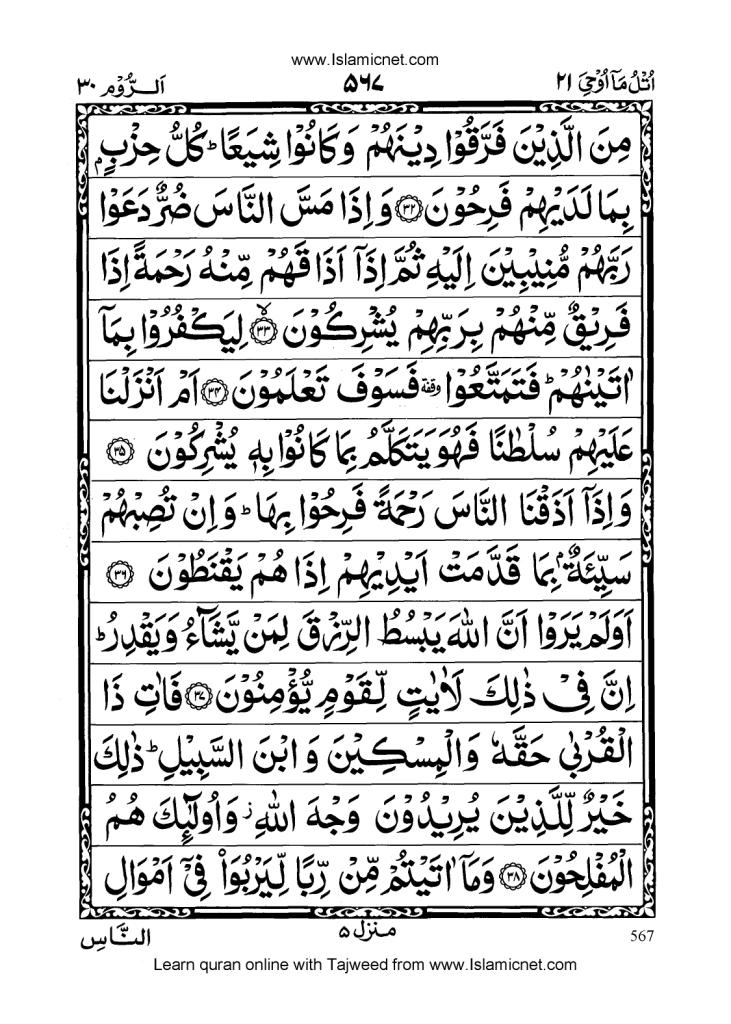 www.Islamicnet.com
اُتْلُ مَآ اُوْحِيَ ٢١
٥٦٧
اَلرُّوْمِ ٣٠
مِنَ الَّذِيْنَ فَرَّقُوْا دِيْنَهُمْ وَكَانُوْا شِيَعًا ؕ كُلُّ حِزْبٍۭ
بِمَا لَدَيْهِمْ فَرِحُوْنَ ﴿٣٢﴾ وَاِذَا مَسَّ النَّاسَ ضُرٌّ دَعَوْا
رَبَّهُمْ مُّنِيْبِيْنَ اِلَيْهِ ثُمَّ اِذَآ اَذَاقَهُمْ مِّنْهُ رَحْمَةً اِذَا
فَرِيْقٌ مِّنْهُمْ بِرَبِّهِمْ يُشْرِكُوْنَ ﴿٣٣﴾ۙ لِيَكْفُرُوْا بِمَآ
اٰتَيْنٰهُمْ ؕ فَتَمَتَّعُوْا وقفة فَسَوْفَ تَعْلَمُوْنَ ﴿٣٤﴾ اَمْ اَنْزَلْنَا
عَلَيْهِمْ سُلْطٰنًا فَهُوَ يَتَكَلَّمُ بِمَا كَانُوْا بِهٖ يُشْرِكُوْنَ ﴿٣٥﴾
وَاِذَآ اَذَقْنَا النَّاسَ رَحْمَةً فَرِحُوْا بِهَا ؕ وَاِنْ تُصِبْهُمْ
سَيِّئَةٌۢ بِمَا قَدَّمَتْ اَيْدِيْهِمْ اِذَا هُمْ يَقْنَطُوْنَ ﴿٣٦﴾
اَوَلَمْ يَرَوْا اَنَّ اللّٰهَ يَبْسُطُ الرِّزْقَ لِمَنْ يَّشَآءُ وَيَقْدِرُ ؕ
اِنَّ فِيْ ذٰلِكَ لَاٰيٰتٍ لِّقَوْمٍ يُّؤْمِنُوْنَ ﴿٣٧﴾ فَاٰتِ ذَا
الْقُرْبٰى حَقَّهٗ وَالْمِسْكِيْنَ وَابْنَ السَّبِيْلِ ؕ ذٰلِكَ
خَيْرٌ لِّلَّذِيْنَ يُرِيْدُوْنَ وَجْهَ اللّٰهِ ؗ وَاُولٰٓئِكَ هُمُ
الْمُفْلِحُوْنَ ﴿٣٨﴾ وَمَآ اٰتَيْتُمْ مِّنْ رِّبًا لِّيَرْبُوَا۟ فِيْٓ اَمْوَالِ
النَّاسِ
منزل ٥
567
Learn quran online with Tajweed from www.Islamicnet.com